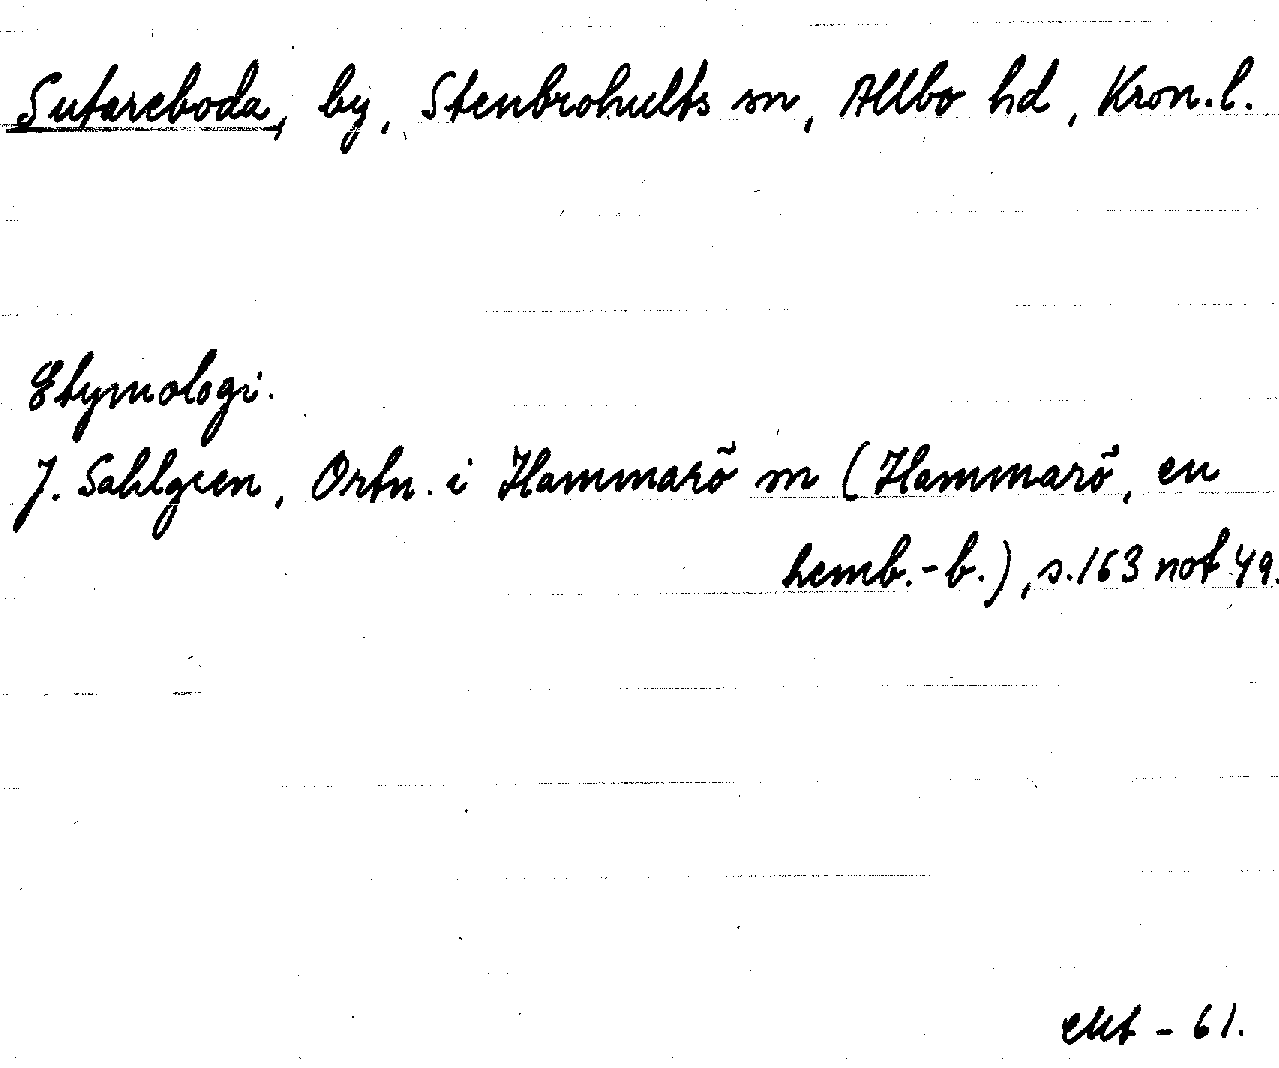 Sutareboda, by, Stenbrohults sn, Allbo hd, Kron.l.
Etymologi.
J. Sahlgren, Ortn. i Hammarö sn (Hammarö, en
hemb.-b.), s. 163 not 49.
- 61.